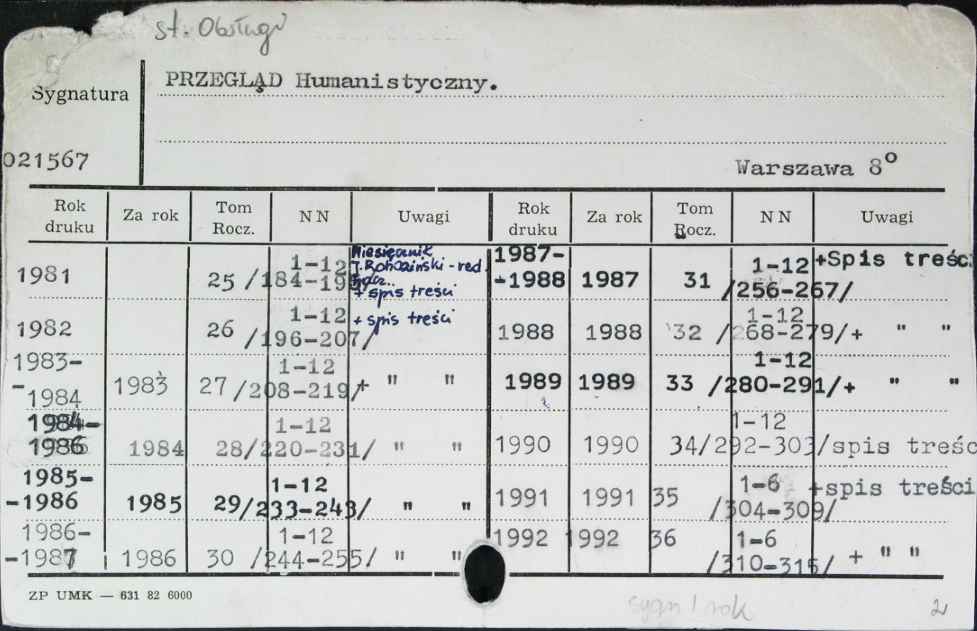 st. Obsługi
Sygnatura
PRZEGLĄD Humanistyczny.
021567
Warszawa 8°
Rok druku Za rok Tom Rocz. NN Uwagi Rok druku Za rok Tom Rocz. NN Uwagi
1981 25 /184-195/ 1-12 Miesięcznik
- red.
+ spis treści
1987-
-1988 1987 31 1-12 /256-267/ +Spis treści
1982 26 1-12 /196-207/ + spis treści
1988 1988 32 1-12 /268-279/+ " "
1983-
-1984 1983 27 1-12 /208-219/+ " "
1989 1989 33 1-12 /280-291/+ " "
1984-
1986 1984 28 1-12 /220-231/ " "
1990 1990 34 1-12 /292-303/spis treśc
1985-
-1986 1985 29 1-12 /233-243/ " "
1991 1991 35 1-6 /304-309/ +spis treści
1986-
-1987 1986 30 1-12 /244-255/ " "
1992 1992 36 1-6 /310-315/ + " "
ZP UMK — 631 82 6000
sygn / rok
2